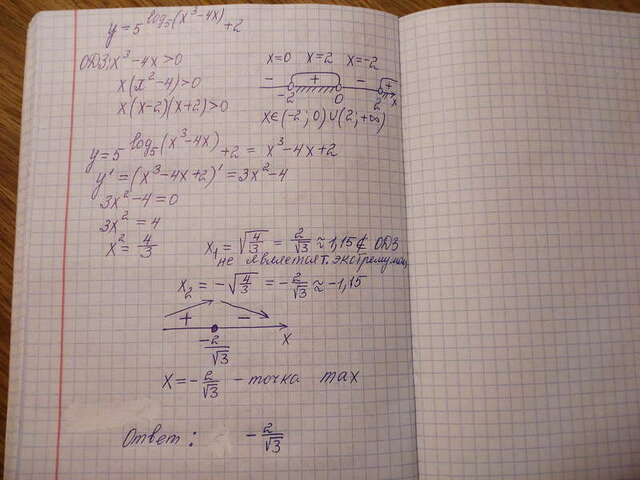 y = 5^(log₅(x³-4x)) + 2
ОДЗ: x³-4x>0
x(x²-4)>0
x(x-2)(x+2)>0
x=0 x=2 x=-2
- + - +
-2 0 2 x
x∈(-2; 0)∪(2; +∞)
y = 5^(log₅(x³-4x)) + 2 = x³-4x+2
y' = (x³-4x+2)' = 3x²-4
3x²-4=0
3x² = 4
x² = 4/3
x₁ = √(4/3) = 2/√3 ≈ 1,15 ∉ ОДЗ
не является т. экстремума
x₂ = -√(4/3) = -2/√3 ≈ -1,15
+ -
-2/√3 x
x = -2/√3 - точка max
Ответ: -2/√3